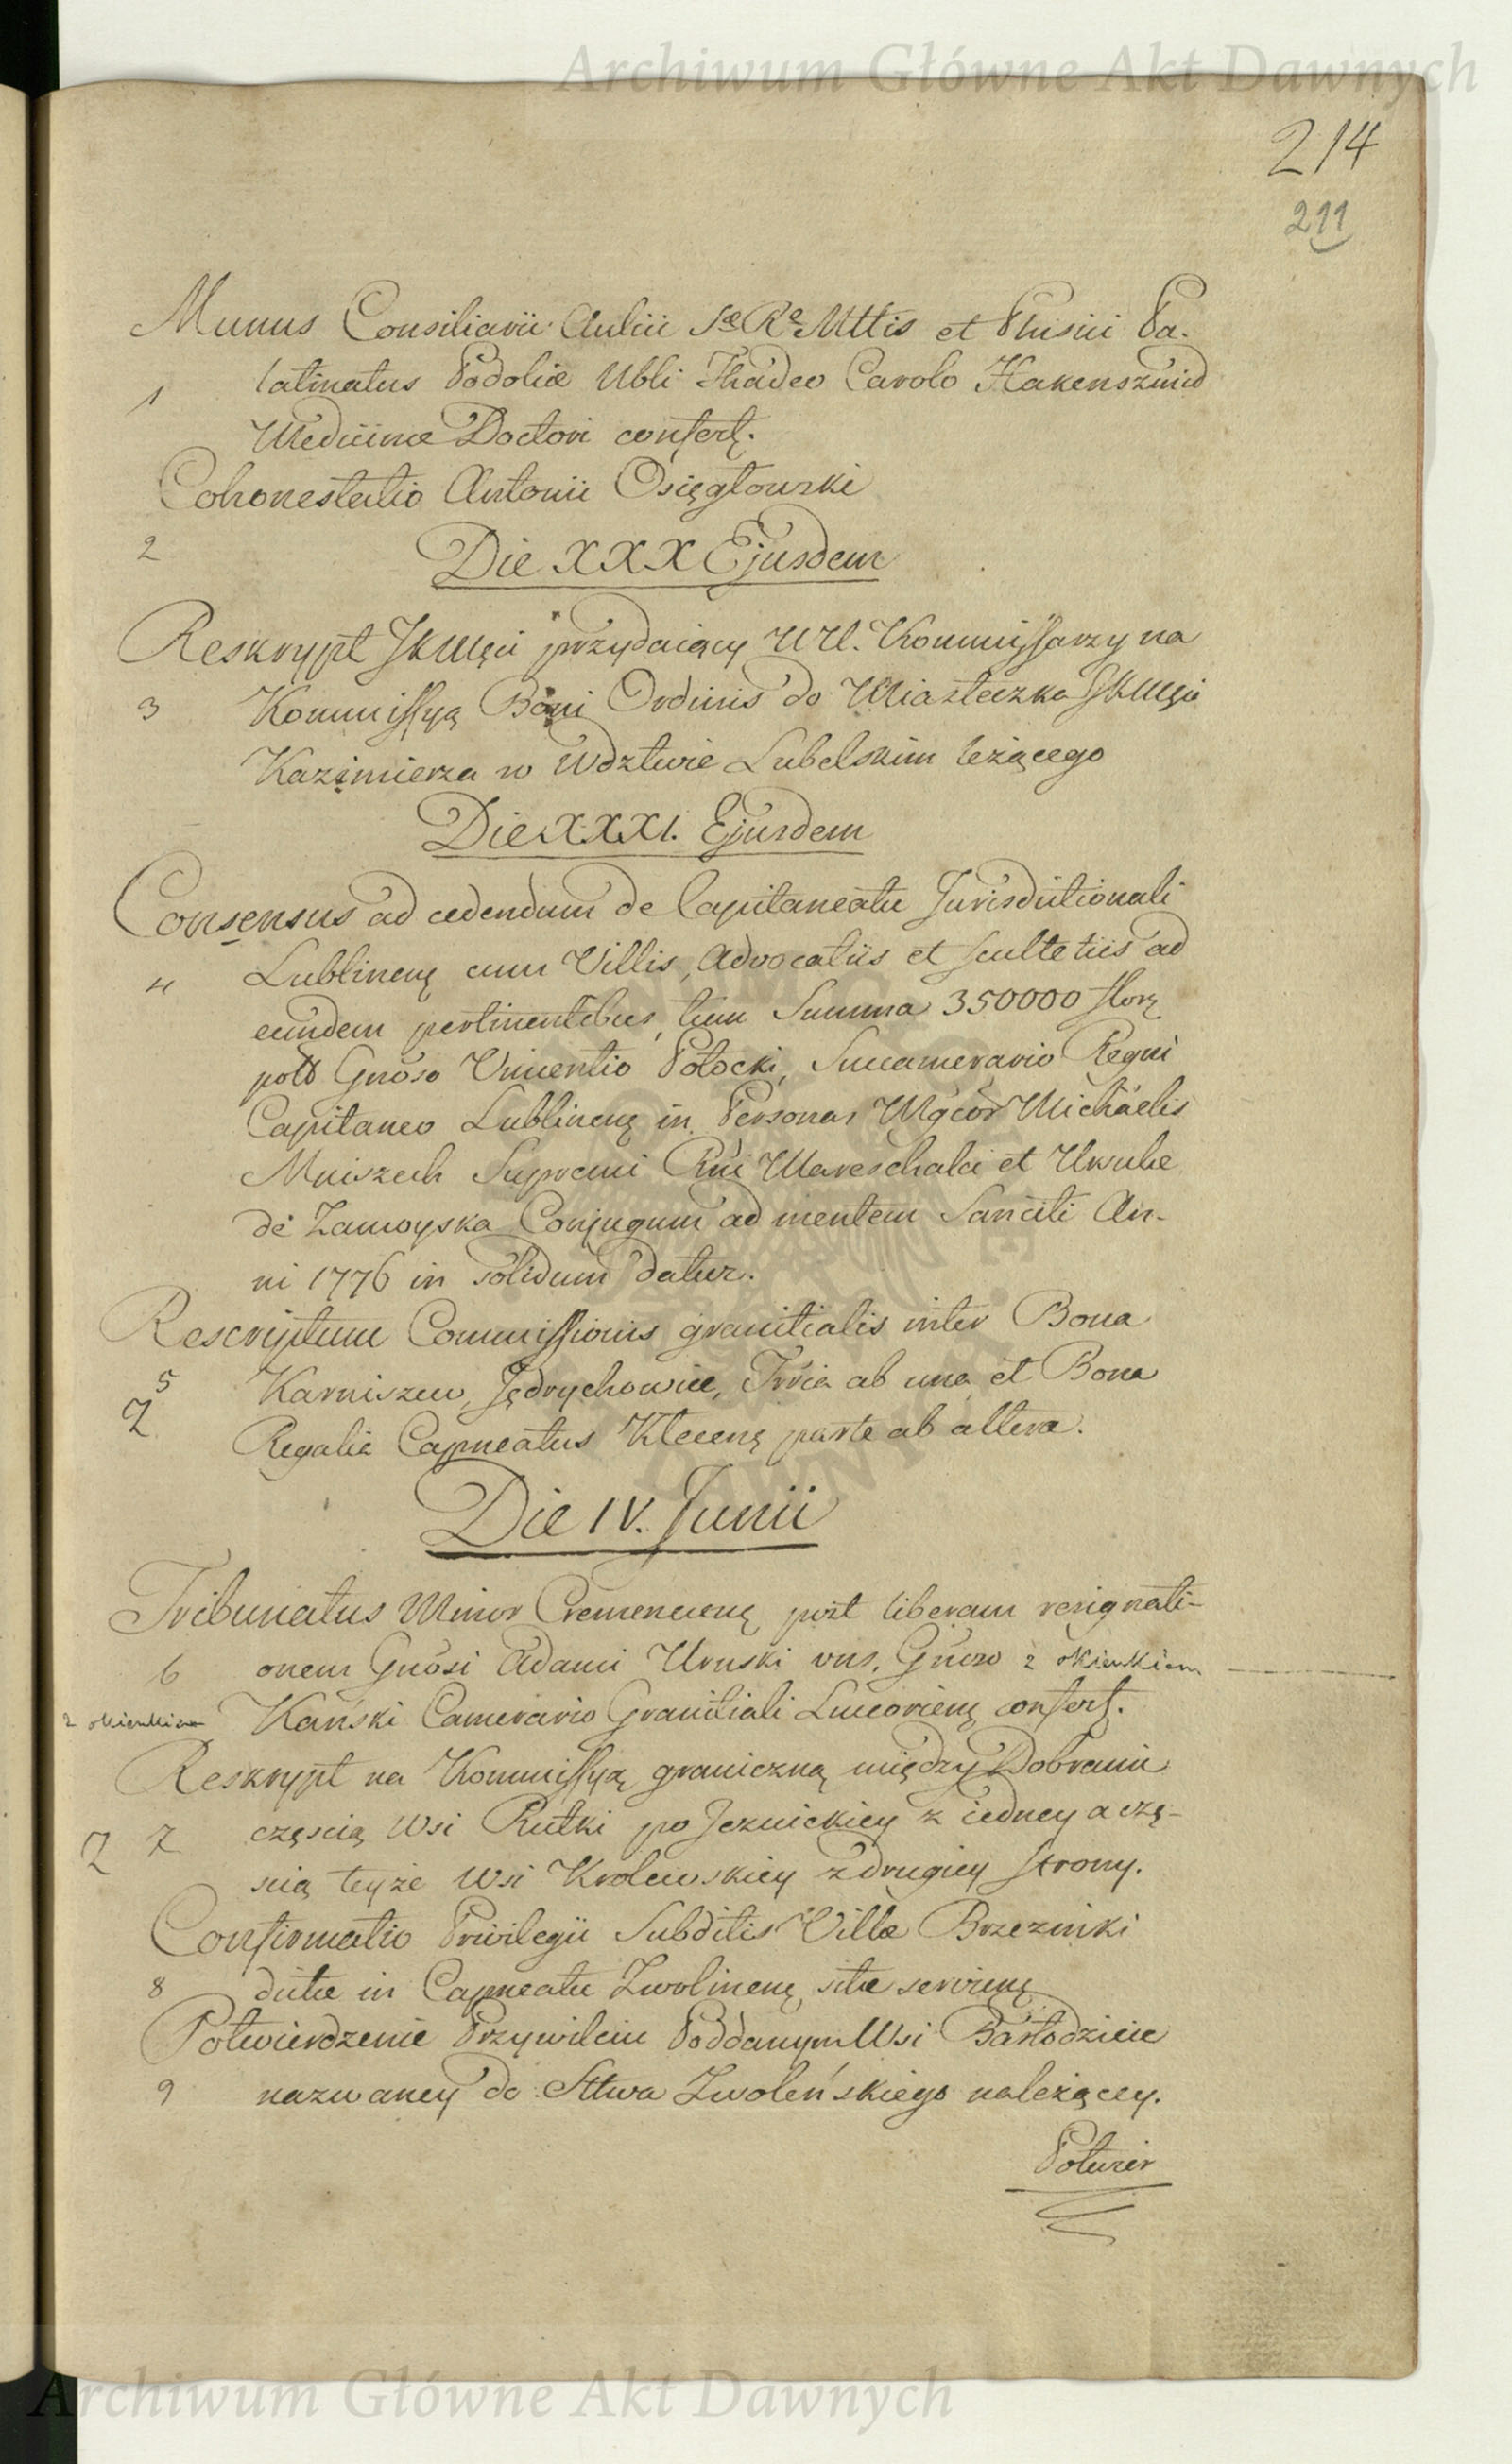 Archiwum Główne Akt Dawnych
214
211
Munus Consiliarii Aulici Sæ Ræ Mttis et Phisici Pa-
1 latinatus Podoliæ Nbli Thadeo Carolo Hakenszmid
Medicinæ Doctori confertę.
Cohonestatio Antonii Osięgłowski
2 Die XXX Ejusdem
Reskrypt JKMęci przydaiący UU. Kommissarzy na
3 Kommissyą Boni Ordinis do Miasteczka JKMęci
Kazimierza w Wdztwie Lubelskim leżącego
Die XXXI. Ejusdem
Consensus ad cedendum de Capitaneatu Jurisdictionali
4 Lublinenę cum Villis, Advocatiis et Scultetiis ad
eundem pertinentibus, tum Summa 350000 florę
poll Gnoso Vincentio Potocki, Succamerario Regni
Capitaneo Lublinenę in Personas Mgcor Michaelis
Mniszech Supremi Rni Mareschalci et Ursulæ
de Zamoyska Conjugum ad mentem Sanciti An-
ni 1776 in solidum datur.
Rescriptum Commissionis granitialis inter Bona
5 Karniszew, Jędrychowice, Trvia ab una et Bona
2
Regalia Capneatus Klecenę parte ab altera.
Die IV. Junii
Tribunatus Minor Cremenecenę post liberam resignati-
6 onem Gnosi Adami Uruski vns. Gnoso z okienkiem
z okienkiem Kański Camerario Granitiali Luceorienę confertę.
Reskrypt na Kommissyą graniczną między Dobrami
2 7 częscią Wsi Rutki po Jeznickiey z iedney a czę-
scią teyże Wsi Krolewskiey z drugiey strony.
Confirmatio Privilegii Subditis Villæ Brzezinki
8 dictæ in Capneatu Zwolinenę sitæ servienę
Potwierdzenie Przywileiu Poddanym Wsi Bartodzieie
9 nazwaney do Sttwa Zwoleńskiego należącey.
Potwier
Archiwum Główne Akt Dawnych